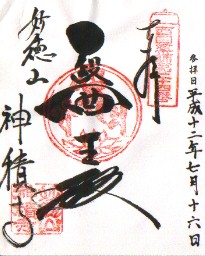 参拝日平成十二年七月十六日
奉拝
医王殿
妙徳山
神積寺